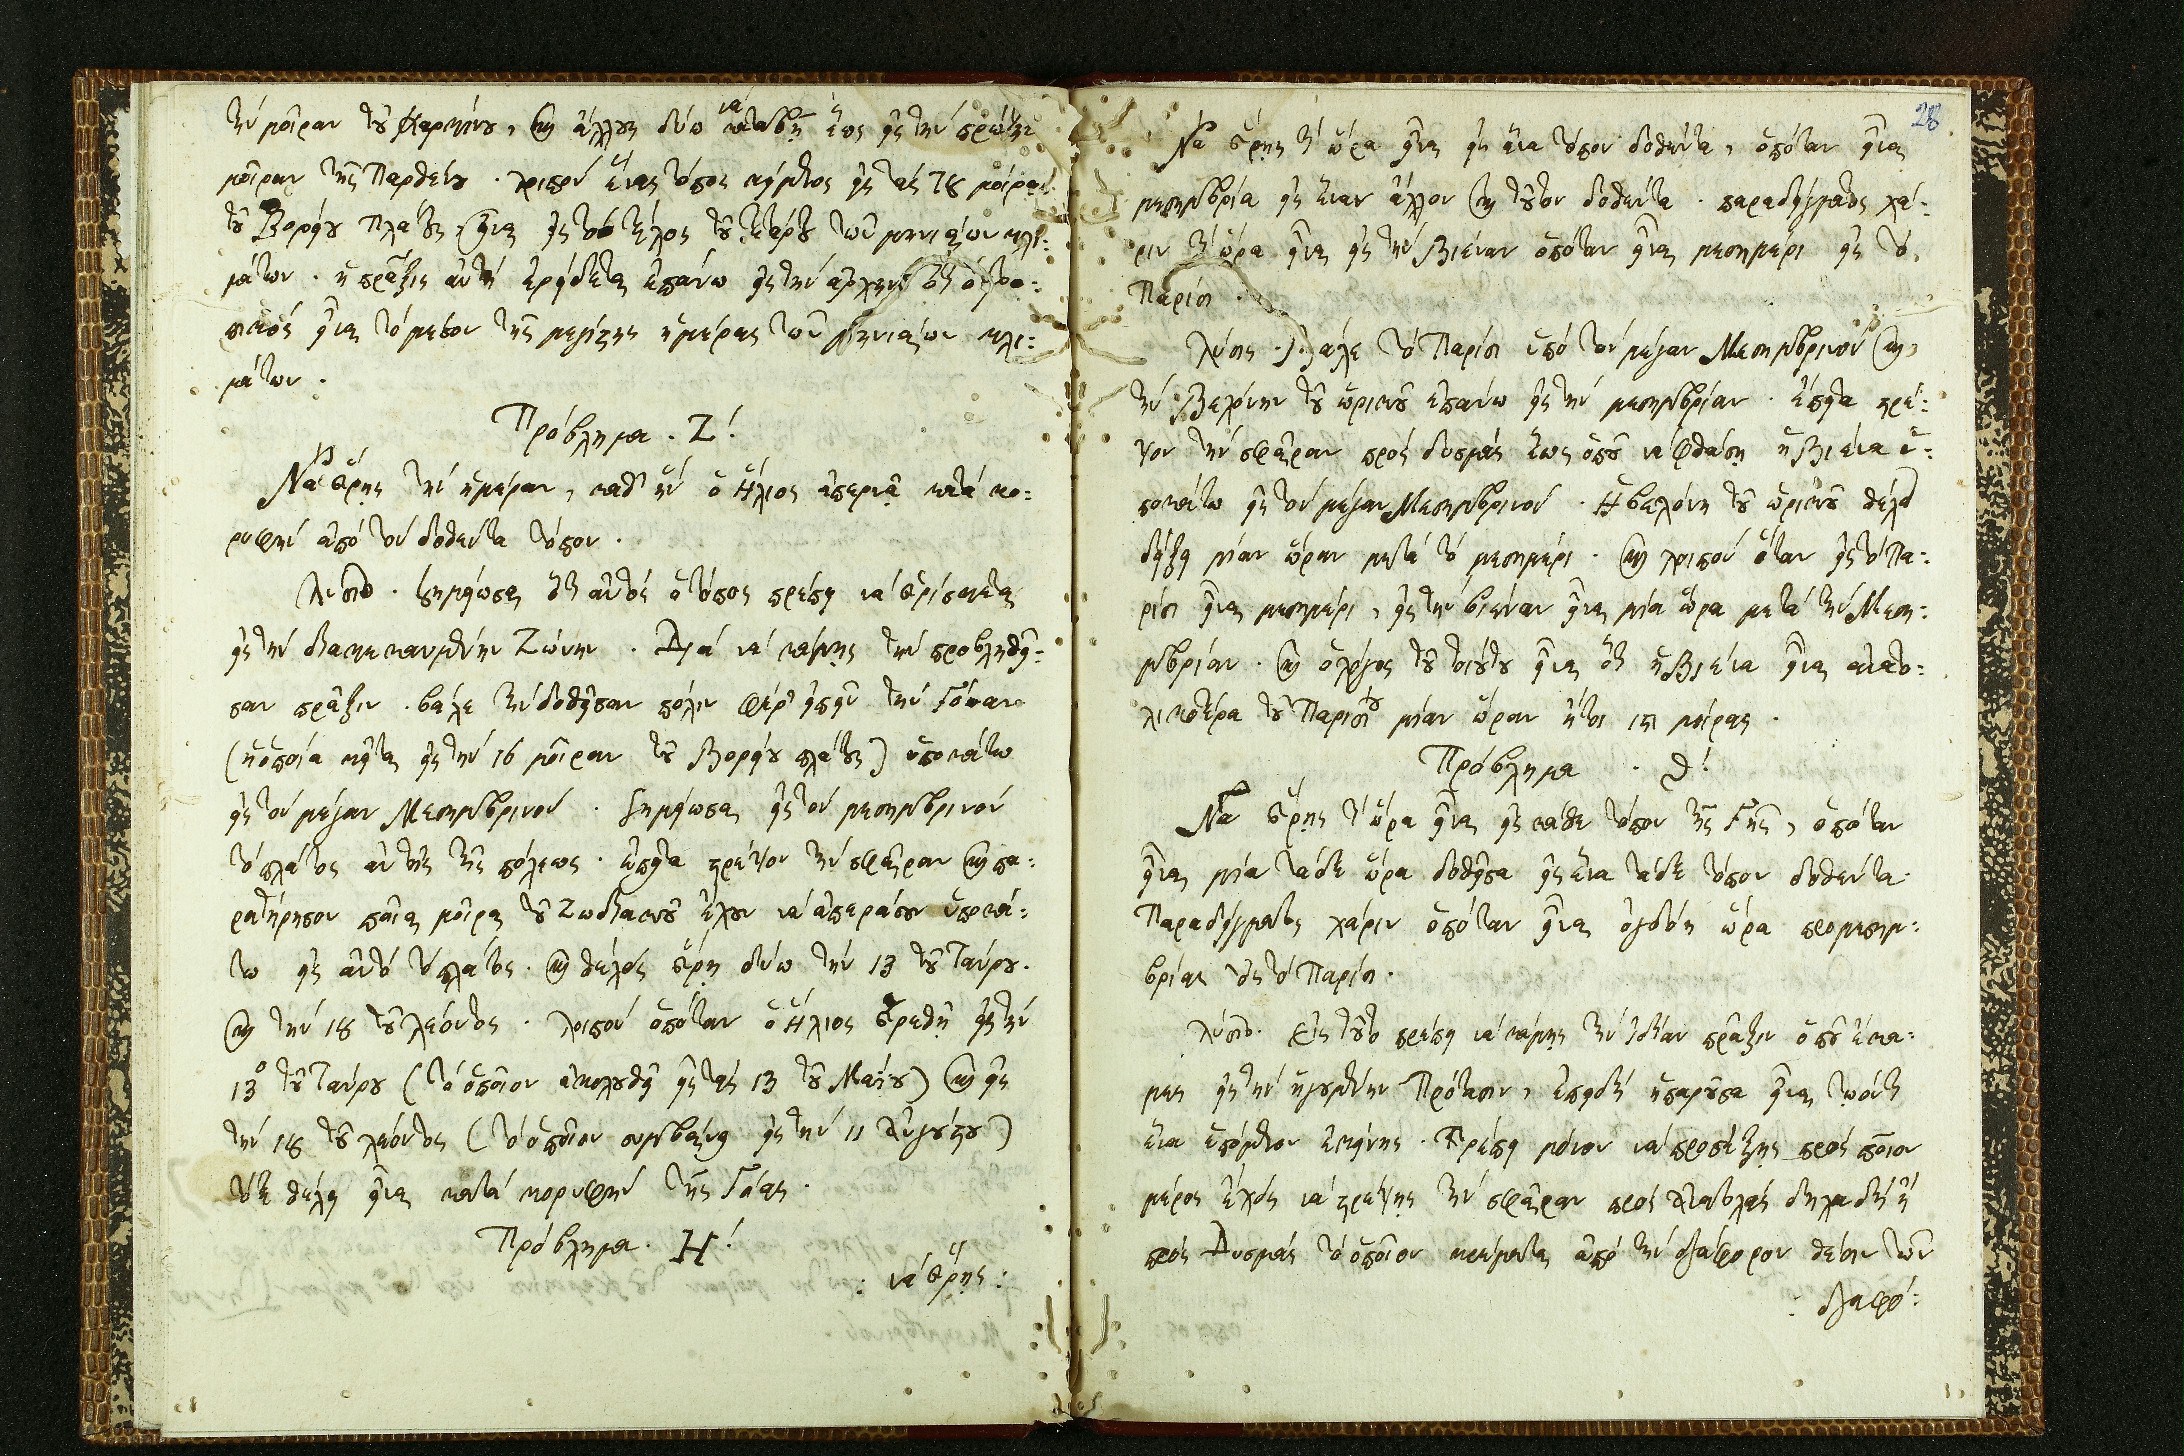 τὴν μοῖραν τοῦ Καρκίνου, καὶ ἄλλους δύω νὰ καταβῇ ἕως εἰς τὴν πρώτην
μοῖραν τῆς Παρθένου. λοιπὸν ἕνας τόπος κείμενος εἰς ταῖς 78 μοίραις
τοῦ Βορείου Πλάτους εἶναι εἰς τὸ τέλος τοῦ τετάρτου τῶν μηνιαίων κλι:
μάτων. ἡ πρᾶξις αὐτὴ ἐρείδεται ἐπάνω εἰς τὴν ἀρχὴν ὅτι ὁ τρο:
πικὸς εἶναι τὸ μέσον τῆς μεγίστης ἡμέρας τῶν μηνιαίων κλι:
μάτων.
Πρόβλημα. Ζ!
Νὰ εὕρῃς τὴν ἡμέραν, καθ' ἣν ὁ Ἥλιος ἀπερνᾷ κατὰ κο:
ρυφὴν ἀπὸ τὸν δοθέντα τόπον.
Λύσις. Σημείωσαι ὅτι αὐτὸς ὁ τόπος πρέπει νὰ εὑρίσκεται
εἰς τὴν διακεκαυμένην Ζώνην. Διὰ νὰ κάμῃς τὴν προβληθεῖ:
σαν πρᾶξιν. βάλε τὴν δοθεῖσαν πόλιν φέρ' εἰπεῖν τὴν Γόαν
(ἡ ὁποία κεῖται εἰς τὴν 16 μοῖραν τοῦ Βορείου πλάτους) ὑποκάτω
εἰς τὸν μέγαν Μεσημβρινόν. Σημείωσαι εἰς τὸν μεσημβρινὸν
τὸ πλάτος αὐτῆς τῆς πόλεως. ἔπειτα στρέψον τὴν σφαῖραν καὶ πα:
ρατήρησον ποίαι μοῖραι τοῦ Ζωδιακοῦ ἔχουν νὰ ἀπεράσουν ὑποκά:
τω εἰς αὐτὸ τὸ πλάτος. καὶ θέλεις εὕρῃ δύω τὴν 13 τοῦ Ταύρου.
καὶ τὴν 18 τοῦ λέοντος. λοιπὸν ὁπόταν ὁ Ἥλιος εὑρεθῇ εἰς τὴν
13° τοῦ Ταύρου (τὸ ὁποῖον ἀκολουθεῖ εἰς ταῖς 13 τοῦ Μαΐου) καὶ εἰς
τὴν 18 τοῦ λέοντος (τὸ ὁποῖον συμβαίνει εἰς τὴν 11 Αὐγούστου)
τότε θέλει εἶναι κατὰ κορυφὴν τῆς Γόας.
Πρόβλημα. Η!
: νὰ εὕρῃς:
28
Νὰ εὕρῃς τί ὥρα εἶναι εἰς ἕνα τόπον δοθέντα, ὁπόταν εἶναι
μεσημβρία εἰς ἕναν ἄλλον καὶ τοῦτον δοθέντα. παραδείγματος χά:
ριν τί ὥρα εἶναι εἰς τὴν Βιέναν ὁπόταν εἶναι μεσημέρι εἰς τὸ
Παρίσι.
Λύσις. Βάλε τὸ Παρίσι ὑπὸ τὸν μέγαν Μεσημβρινὸν καὶ
τὴν Βελόνην τοῦ ὡρικοῦ ἐπάνω εἰς τὴν μεσημβρίαν. ἔπειτα στρέ:
ψον τὴν σφαῖραν πρὸς δυσμὰς ἕως ὁποῦ νὰ φθάσῃ ἡ Βιένα ὑ:
ποκάτω εἰς τὸν μέγαν Μεσημβρινόν. Ἡ βελόνη τοῦ ὡρικοῦ θέλει
δείξει μίαν ὥραν μετὰ τὸ μεσημέρι. καὶ λοιπὸν ὅταν εἰς τὸ Πα:
ρίσι εἶναι μεσημέρι, εἰς τὴν βιέναν εἶναι μία ὥρα μετὰ τὴν Μεση:
μβρίαν. καὶ ὁ λόγος τοῦ τοιούτου εἶναι ὅτι ἡ Βιένα εἶναι ἀνατο:
λικοτέρα τοῦ Παρισίου μίαν ὥραν ἤτοι 15 μοίρας.
Πρόβλημα . Θ!
Νὰ εὕρῃς τί ὥρα εἶναι εἰς κάθε τόπον τῆς Γῆς, ὁπόταν
εἶναι μία τάδε ὥρα δοθεῖσα εἰς ἕνα τάδε τόπον δοθέντα.
Παραδείγματος χάριν ὁπόταν εἶναι ὀγδόη ὥρα προμεσημ:
βρίας εἰς τὸ Παρίσι.
Λύσις. Εἰς τοῦτο πρέπει νὰ κάμῃς τὴν ἰδίαν πρᾶξιν ὁποῦ ἔκα:
μες εἰς τὴν ἡγουμένην Πρότασιν, ἐπειδὴ ἡ παροῦσα εἶναι τρόπον τινὰ
ἕνα ἑπόμενον ἐκείνης. Πρέπει μόνον νὰ προσέξῃς πρὸς ποῖον
μέρος ἔχεις νὰ στρέψῃς τὴν σφαῖραν πρὸς Ἀνατολὰς δηλαδὴ ἢ
πρὸς Δυσμὰς τὸ ὁποῖον κρέμαται ἀπὸ τὴν διάφορον θέσιν τῶν
: διαφό: